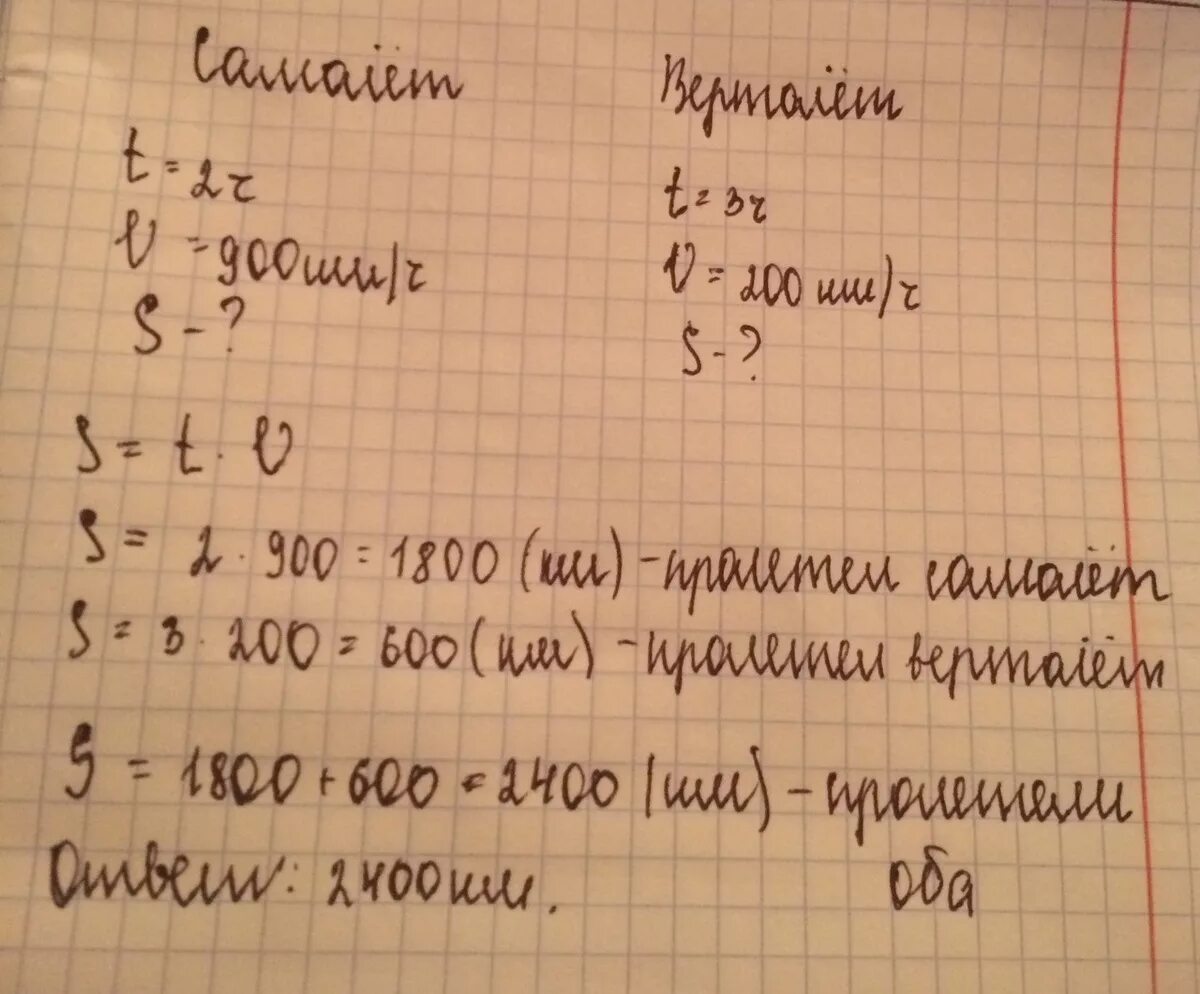 Самолёт
Вертолёт
t = 2ч
t = 3ч
V = 900км/ч
V = 200 км/ч
S - ?
S - ?
S = t · V
S = 2 · 900 = 1800 (км) - пролетел самолёт
S = 3 · 200 = 600 (км) - пролетел вертолёт
S = 1800 + 600 = 2400 (км) - пролетели
оба
Ответ: 2400км.